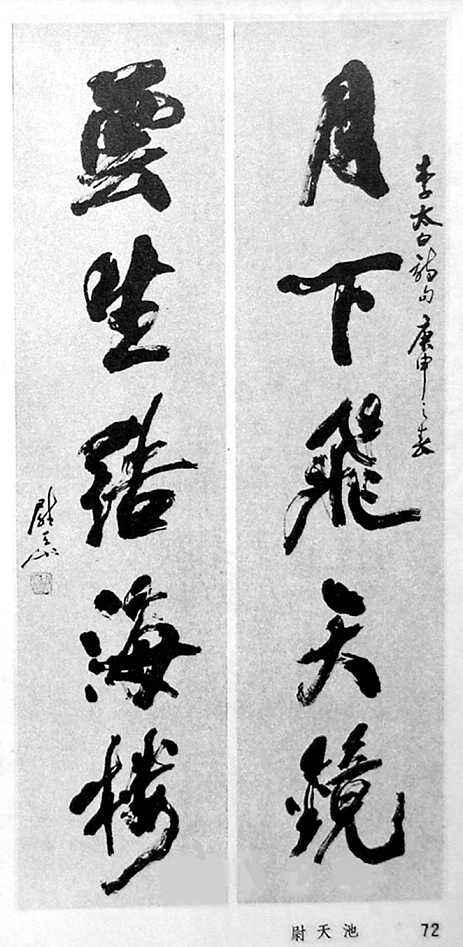 李太白詩句 庚申之春
月下飛天鏡
雲生結海樓
尉天池
尉天池 72